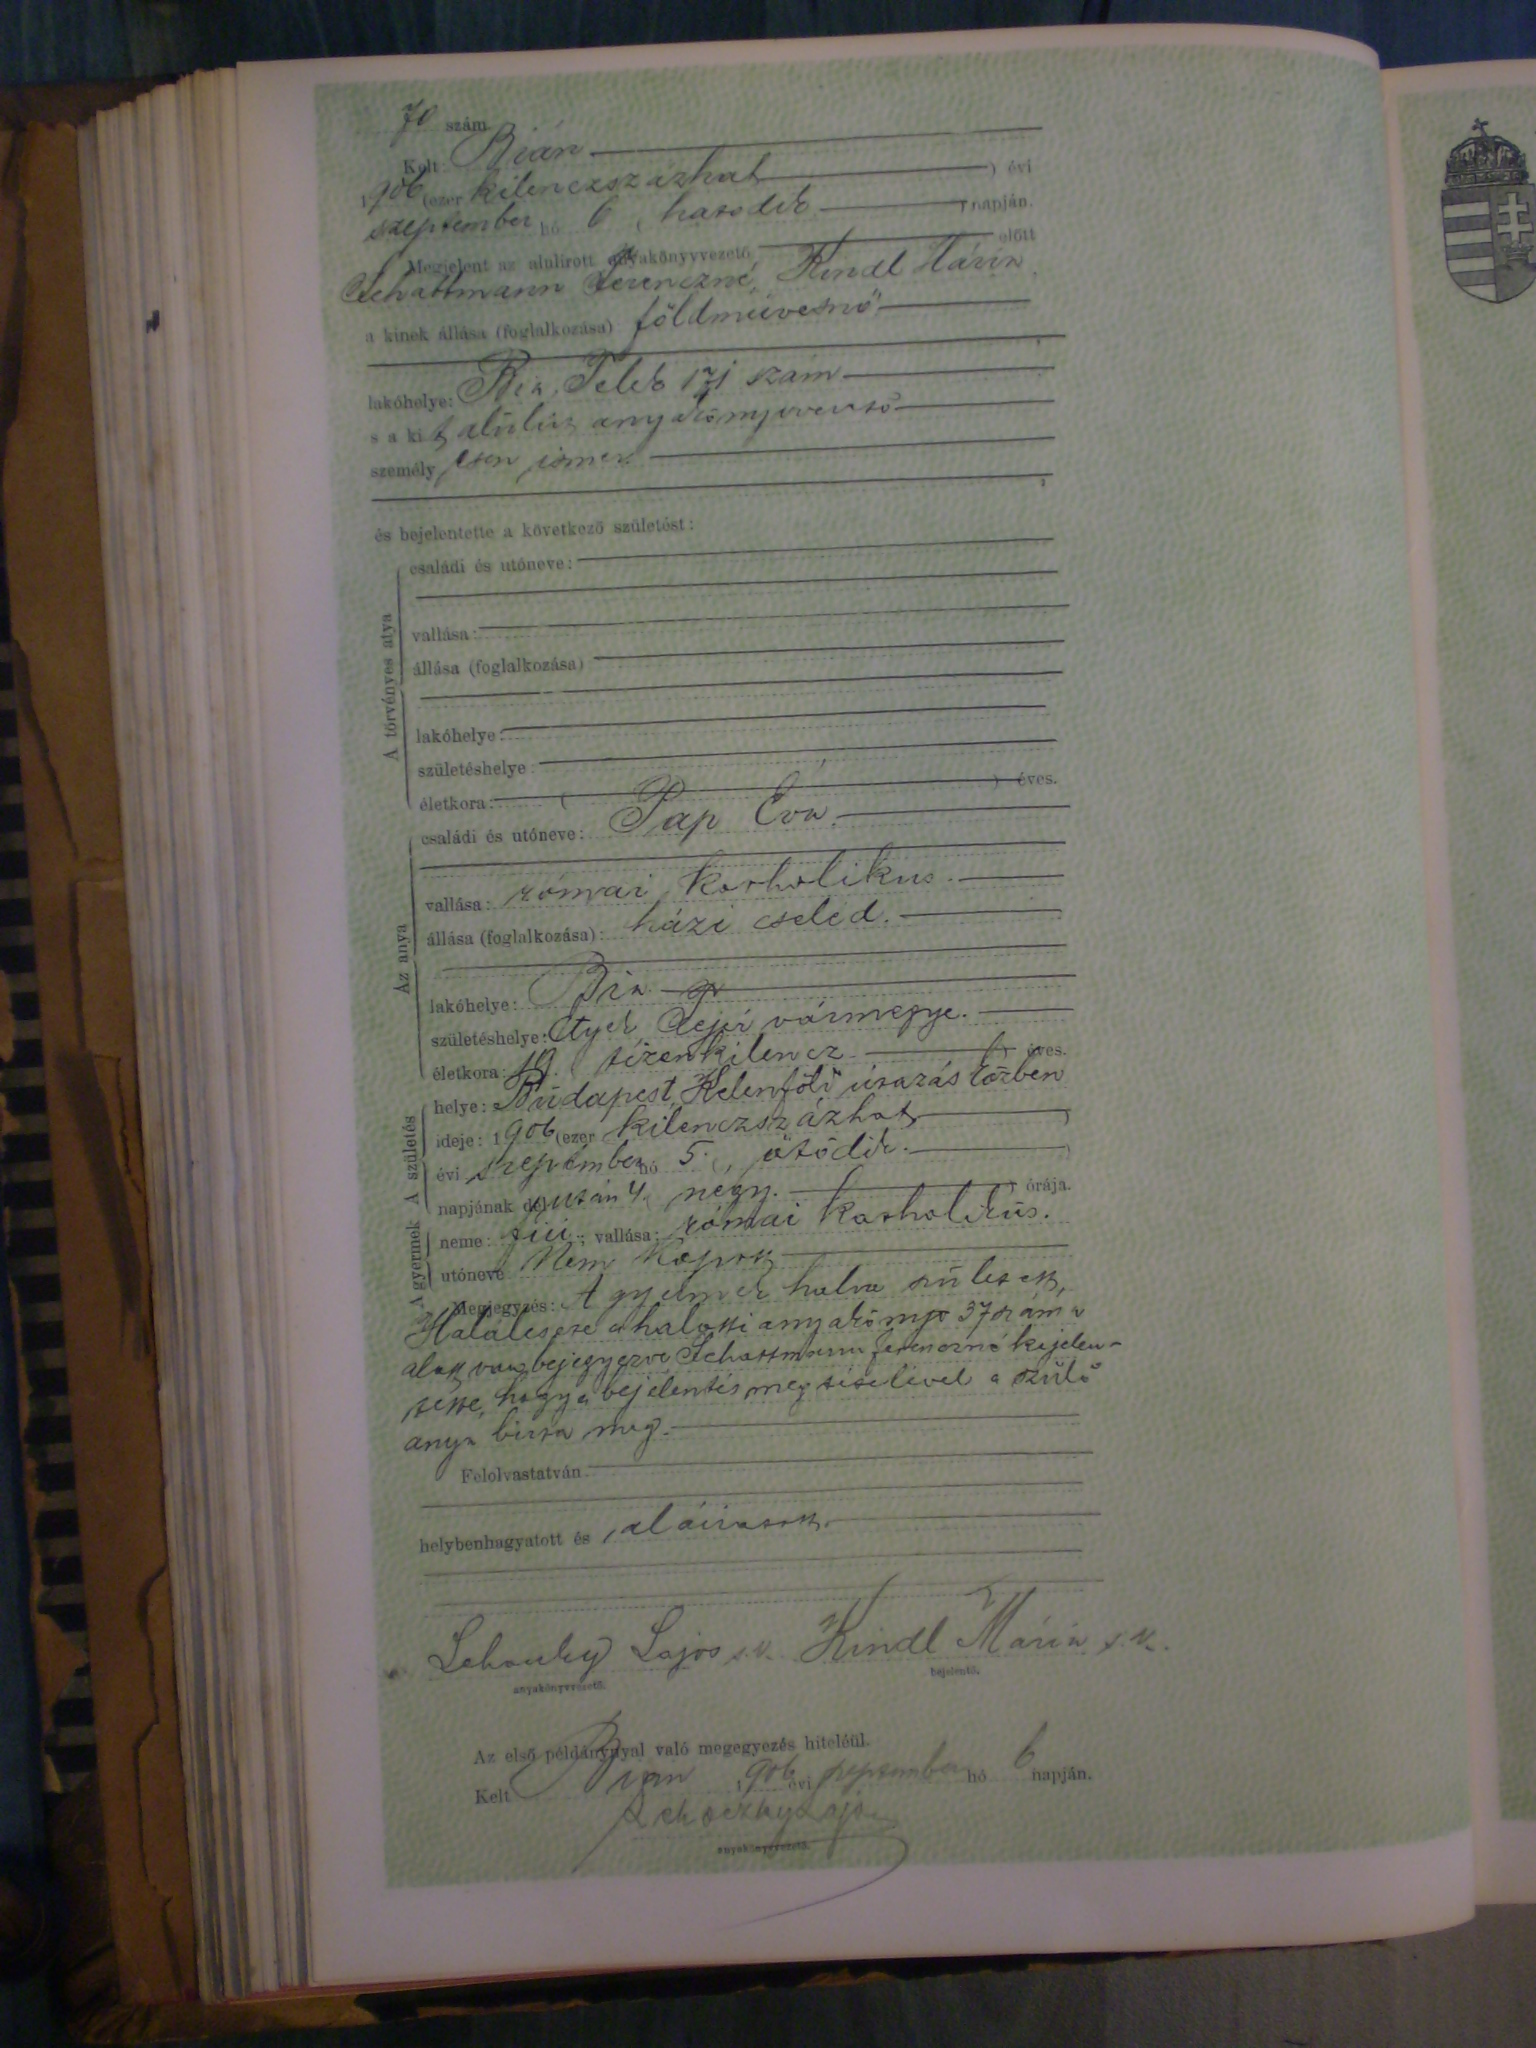 70 szám.
Kelt Bián
1906 (ezer kilenczszázhat ) évi
szeptember hó 6 ( hatodik ) napján.
Megjelent az alulirott anyakönyvvezető előtt
Schattmann Ferenczné, Kindl Mária
a kinek állása (foglalkozása) földmüvesnő
lakóhelye: Bia, Telek 171 szám
s a kit alúlirt anyakönyvvezető
személyesen ismer
és bejelentette a következő születést:
A törvényes atya
családi és utóneve:
vallása:
állása (foglalkozása)
lakóhelye:
születéshelye:
életkora: ( ) éves.
Az anya
családi és utóneve: Pap Éva.
vallása: római katholikus.
állása (foglalkozása): házi cseléd.
lakóhelye: Bia
születéshelye: Etyek, Fejér vármegye.
életkora: 19 ( tizenkilencz ) éves.
A születés
helye: Búdapest, Kelenföld útazás közben
ideje: 1906 (ezer kilenczszázhat )
évi szeptember hó 5. ( ötödik. )
napjának délután 4. ( négy. ) órája.
A gyermek
neme: fiú.; vallása: római katholikús.
utóneve Nem kapott
Megjegyzés: A gyermek halva született,
Halálesete a halotti anyakönyv 37 szám a
alatt van bejegyezve Schattmann Ferenczné kijelen-
tette, hogy a bejelentés megtételével a szülő
anya bizta meg.
Felolvastatván
helybenhagyatott és aláiratott.
Lajos s.k. Kindl Mária s.k.
anyakönyvvezető. bejelentő.
Az első példánynyal való megegyezés hiteléül.
Kelt Bián 1906 évi szeptember hó 6 napján.
anyakönyvvezető.